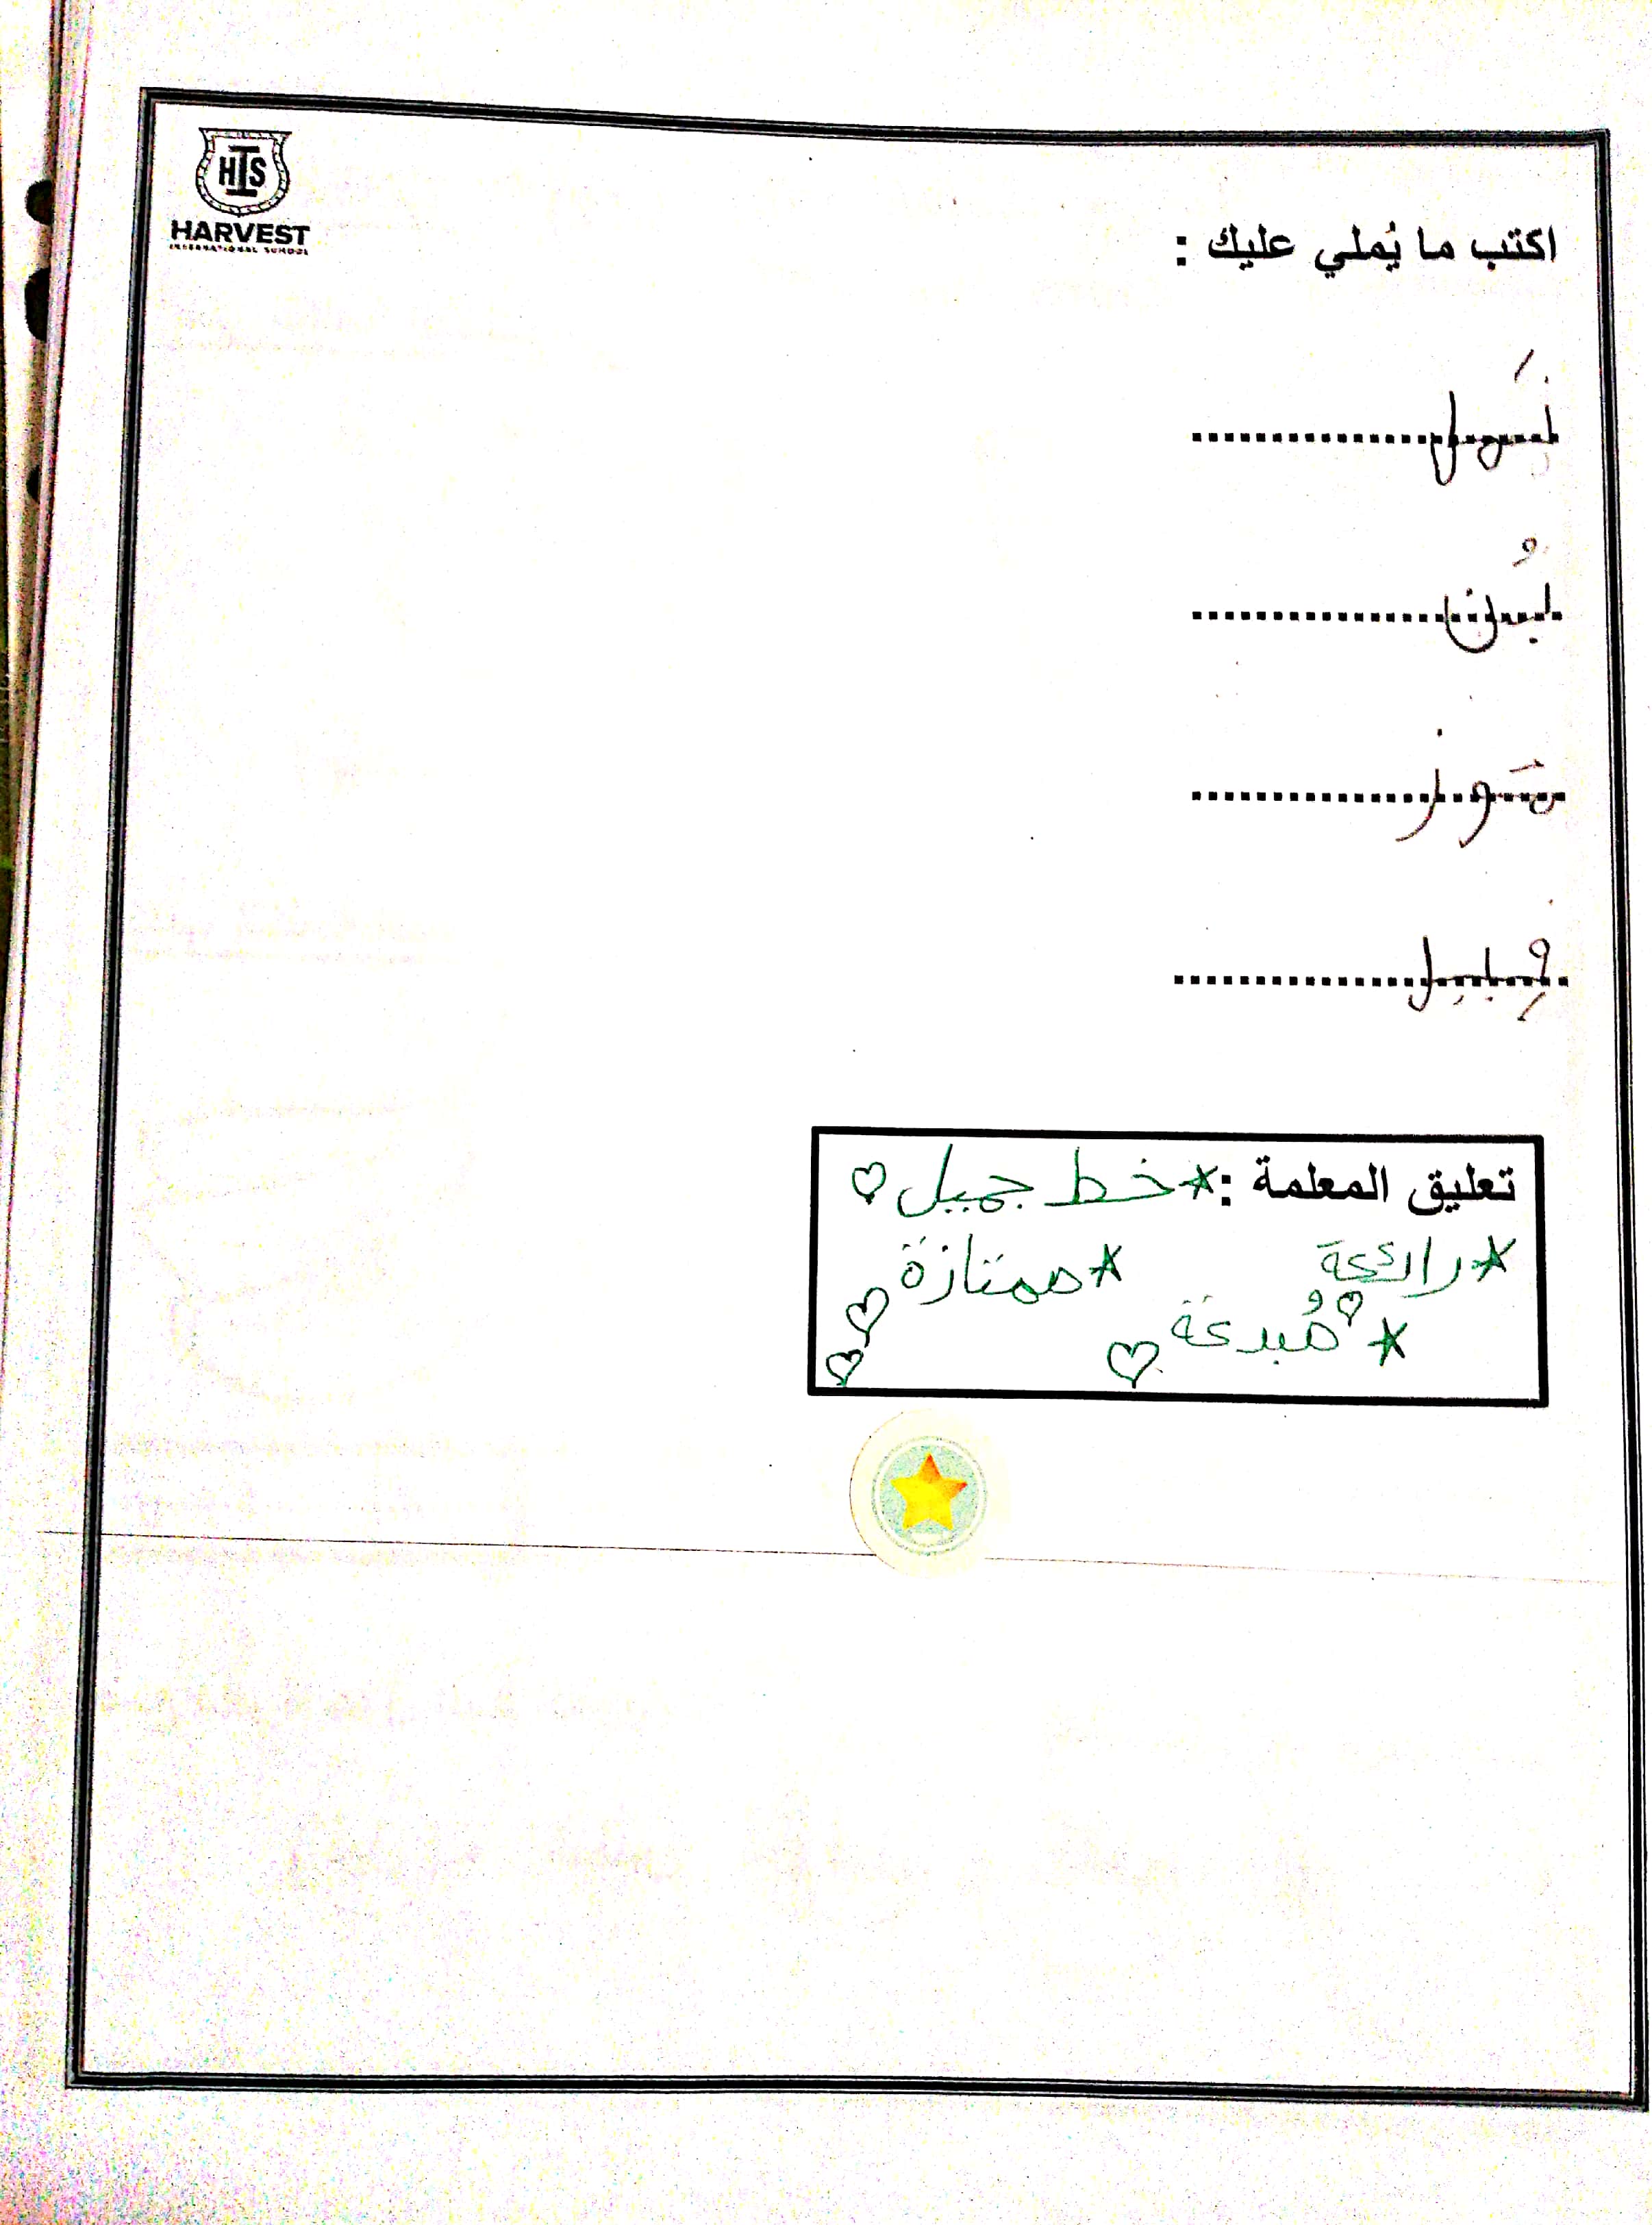 HIS
HARVEST
INTERNATIONAL SCHOOL
اكتب ما يُملي عليك :
نَمل
لبُن
مَوز
فِيل
تعليق المعلمة : خط جميل
رائعة ممتازة
مُبدعة